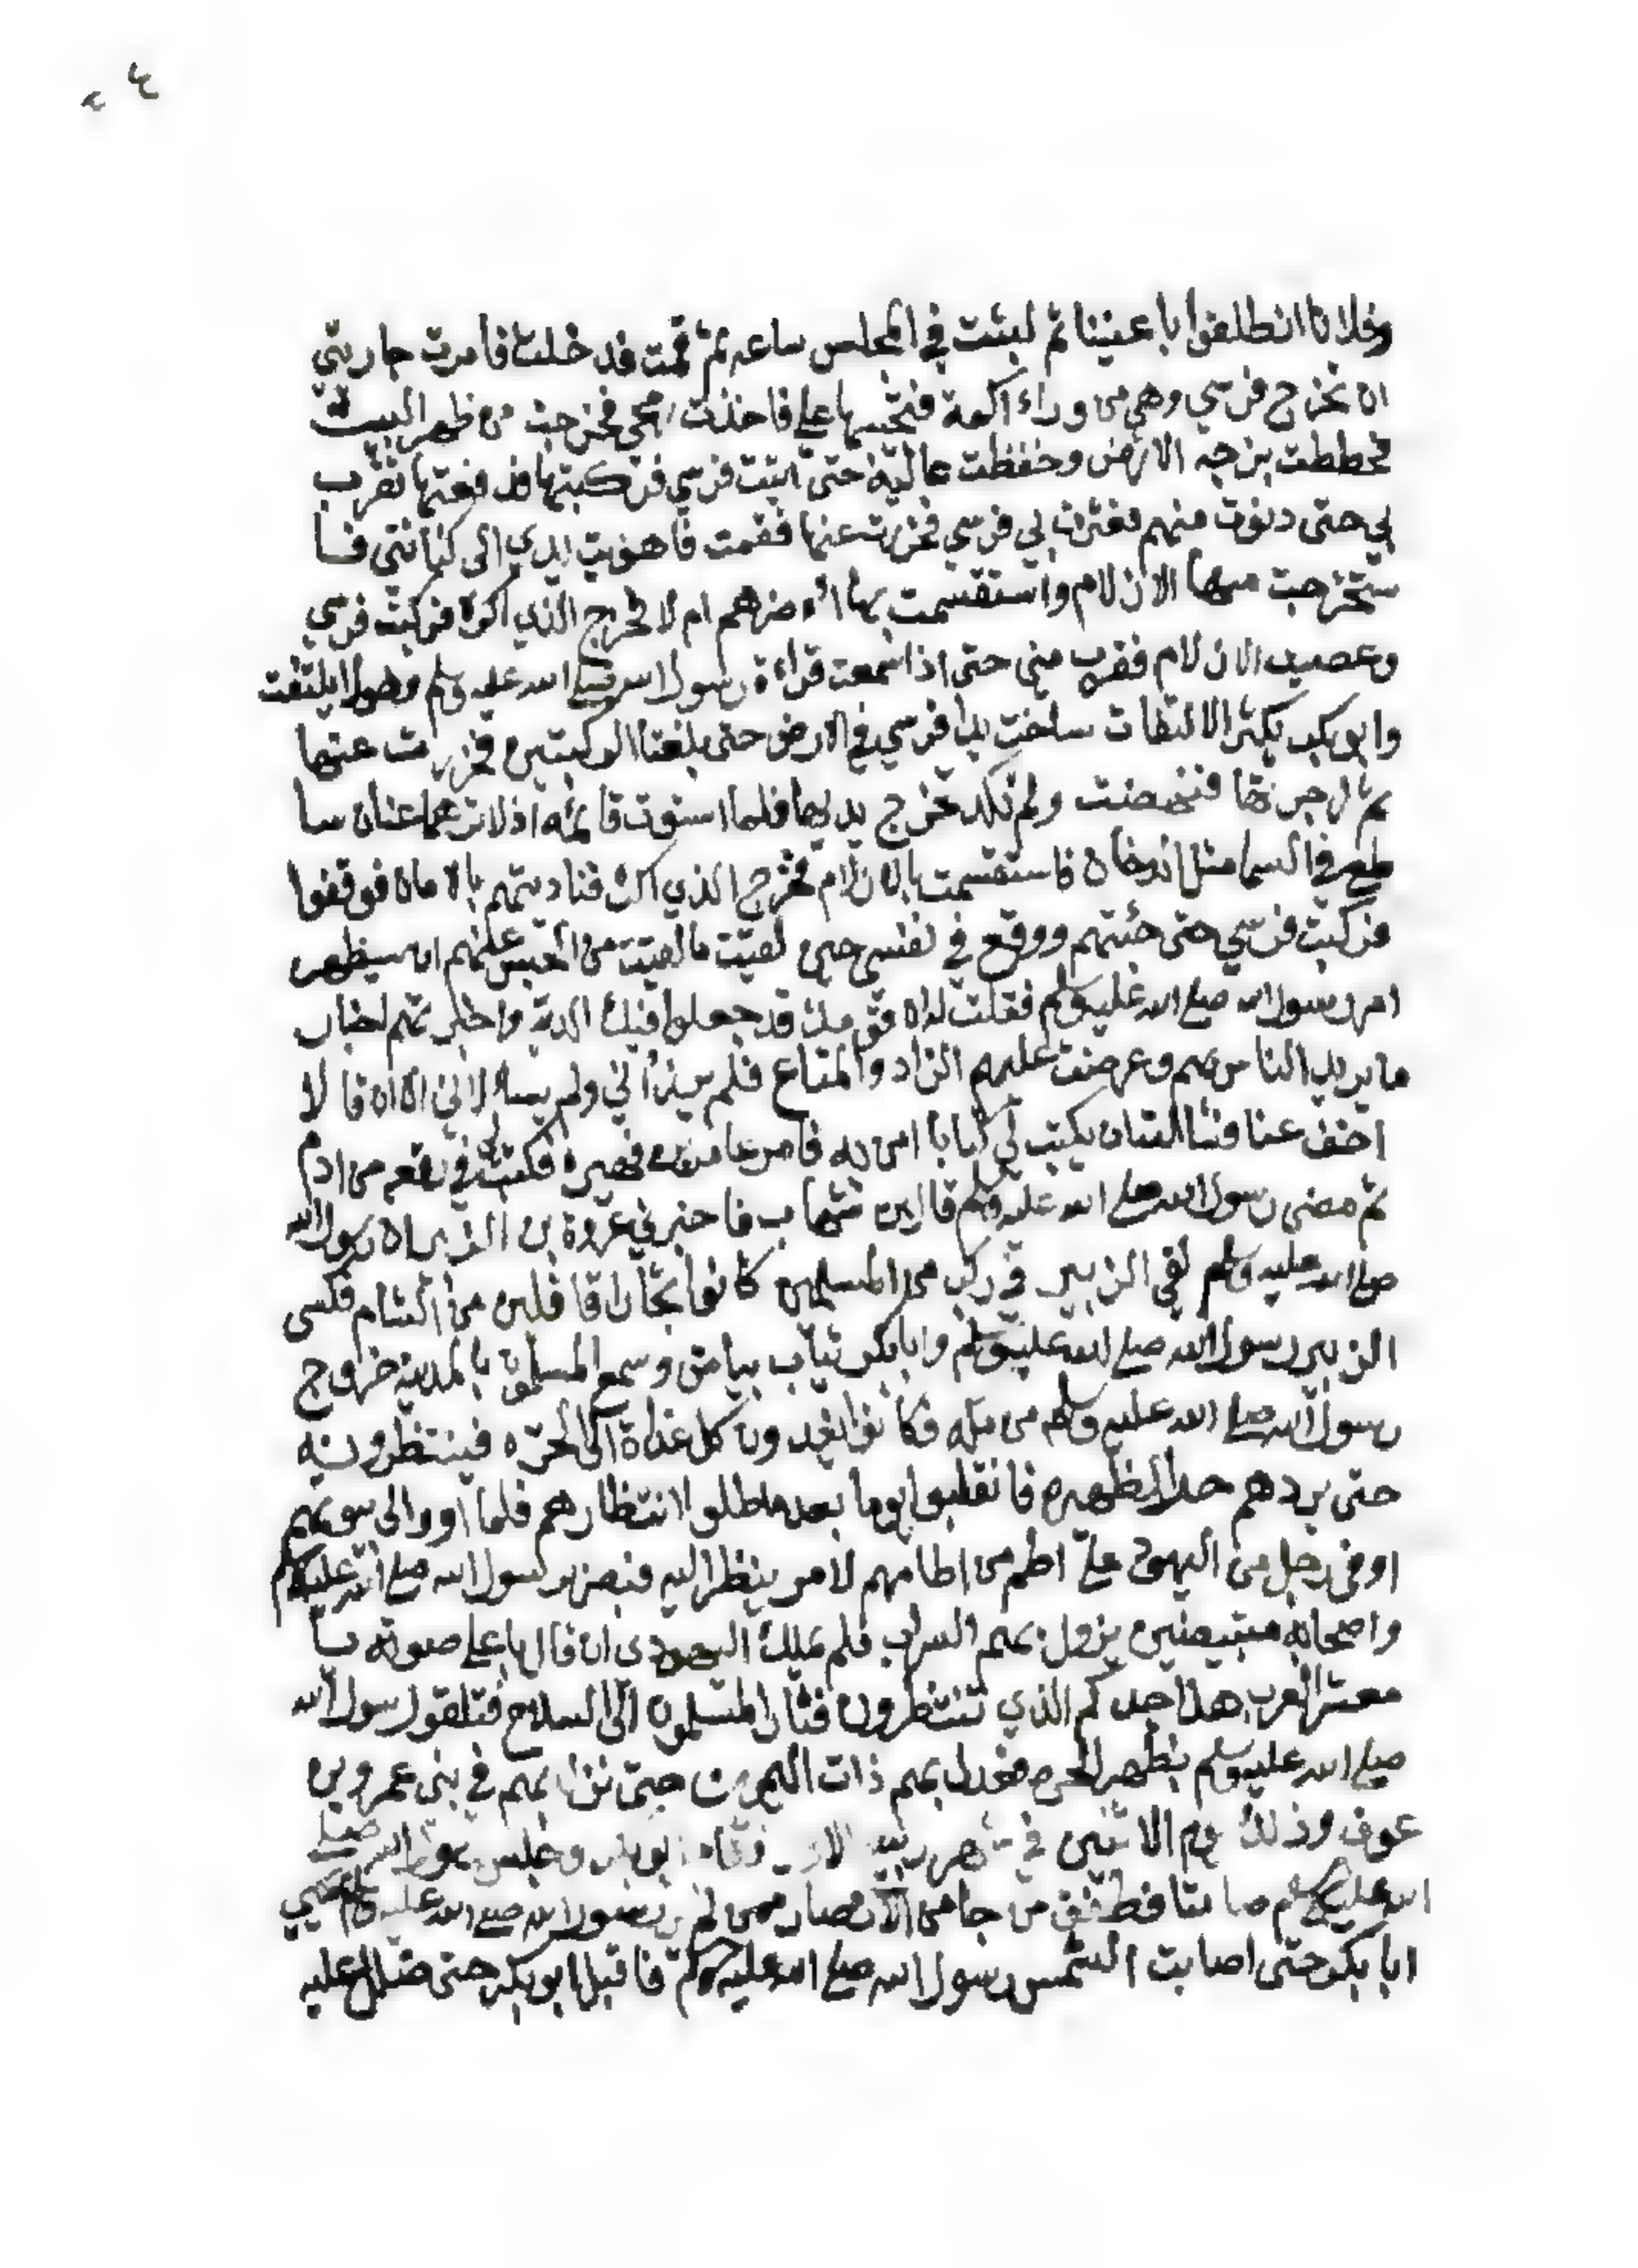 ٤
وفلانا انطلقوا باعيننا ثم لبثت في المجلس ساعه ثم قمت فدخلت فامرت جاريتي
ان تخرج فرسي وهي من وراء اكمة فتحبسها علي فاخذت رمحي فخرجت من ظهر البيت
فخططت بزجه الارض وخفظت عاليه حتى اتيت فرسي فركبتها فدفعتها تقرب
بي حتى دنوت منهم فعثرت بي فرسي فخررت عنها فقمت فاهويت يدي الى كنانتي فا
ستخرجت منها الازلام واستقسمت بها اضرهم ام لا فخرج الذي اكره فركبت فرسي
وعصيت الازلام فقرب مني حتى اذا سمعت قراءة رسول الله صلى الله عليه وسلم وهو لا يلتفت
وابو بكر يكثر الالتفات ساخت يدا فرسي في الارض حتى بلغتا الركبتين فخررت عنها
ثم زجرتها فنهضت ولم تكد تخرج يديها فلما استوت قائمه اذ لاثر عنان سا
طع في السما مثل الدخان فاستقسمت بالازلام فخرج الذي اكره فناديتهم بالامان فوقفوا
فركبت فرسي حتى جئتهم ووقع في نفسي حين لقيت ما لقيت من الحبس عنهم ان سيظهر
امر رسول الله صلى الله عليه وسلم فقلت له ان قومك قد جعلوا فيك الدية واخبرتهم اخبار
ما يريد الناس بهم وعرضت عليهم الزاد والمتاع فلم يرزآني ولم يسالاني الا ان قالا
اخف عنا فسالته ان يكتب لي كتابا امن به فامر عامر بن فهيره فكتب في رقعه من ادم
ثم مضى رسول الله صلى الله عليه وسلم قال ابن شهاب فاخبرني عروة بن الزبير ان رسول الله
صلى الله عليه وسلم لقي الزبير في ركب من المسلمين كانوا تجارا قافلين من الشام فكسى
الزبير رسول الله صلى الله عليه وسلم وابا بكر ثياب بياض وسمع المسلمون بالمدينه خروج
رسول الله صلى الله عليه وسلم من مكه فكانوا يغدون كل غداة الى الحره فينتظرونه
حتى يردهم حر الظهيره فانقلبوا يوما بعد ما طلوا انتظارهم فلما اووا الى بيوتهم
اوفى رجل من اليهود على اطم من اطامهم لامر ينظر اليه فبصر برسول الله صلى الله عليه وسلم
واصحابه مبيضين يزول بهم السراب فلم يملك اليهودى ان قال باعلى صوته يا
معشر العرب هذا جدكم الذي تنتظرون فثار المسلمون الى السلاح فتلقو رسول الله
صلى الله عليه وسلم بظهر الحره فعدل بهم ذات اليمين حتى نزل بهم في بني عمرو بن
عوف وذلك يوم الاثنين في شهر ربيع الاول فقام ابو بكر وجلس رسول الله صلى
الله عليه وسلم صامتا فطفق من جا من الانصار ممن لم ير رسول الله صلى الله عليه وسلم يحيي
ابا بكر حتى اصابت الشمس رسول الله صلى الله عليه وسلم فاقبل ابو بكر حتى ضلل عليه